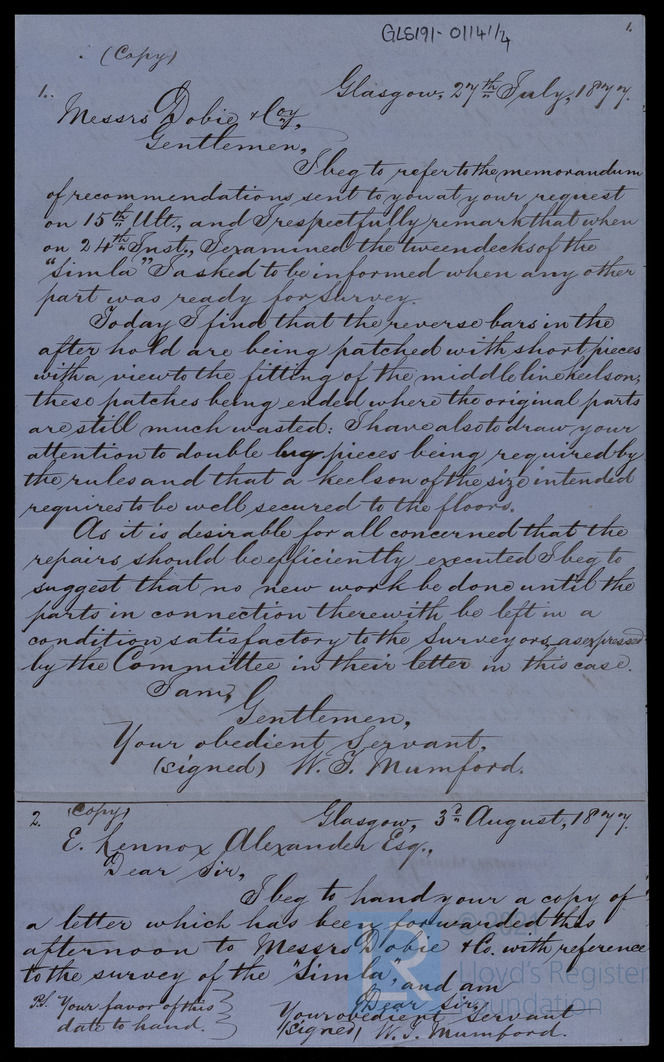 GLS191-0114 1/4
1.
(Copy)
1. Glasgow, 27th July, 1877.
Messrs Dobie & Coy,
Gentlemen,
I beg to refer to the memorandum
of recommendations sent to you at your request
on 15th Ult., and I respectfully remark that when
on 24th Inst., I examined the tweendecks of the
"Simla" I asked to be informed when any other
part was ready for Survey.
Today I find that the reverse bars in the
after hold are being patched with short pieces
with a view to the fitting of the middle line keelson;
these patches being ended where the original parts
are still much wasted: I have also to draw your
attention to double lug pieces being required by
the rules and that a keelson of the size intended
requires to be well secured to the floors.
As it is desirable for all concerned that the
repairs should be efficiently executed I beg to
suggest that no new work be done until the
parts in connection therewith be left in a
condition satisfactory to the Surveyors, as expressed
by the Committee in their letter in this case.
I am,
Gentlemen,
Your obedient Servant,
(signed) W. T. Mumford.
2. (Copy) Glasgow, 3d August, 1877.
E. Lennox Alexander Esq.,
Dear Sir,
I beg to hand your a copy of
a letter which has been forwarded this
afternoon to Messrs Dobie & Co. with reference
to the survey of the "Simla", and am
Dear Sir,
P.S. Your favor of this
date to hand.
Your obedient Servant
(signed) W. T. Mumford.
LR
Lloyd's Register
Foundation